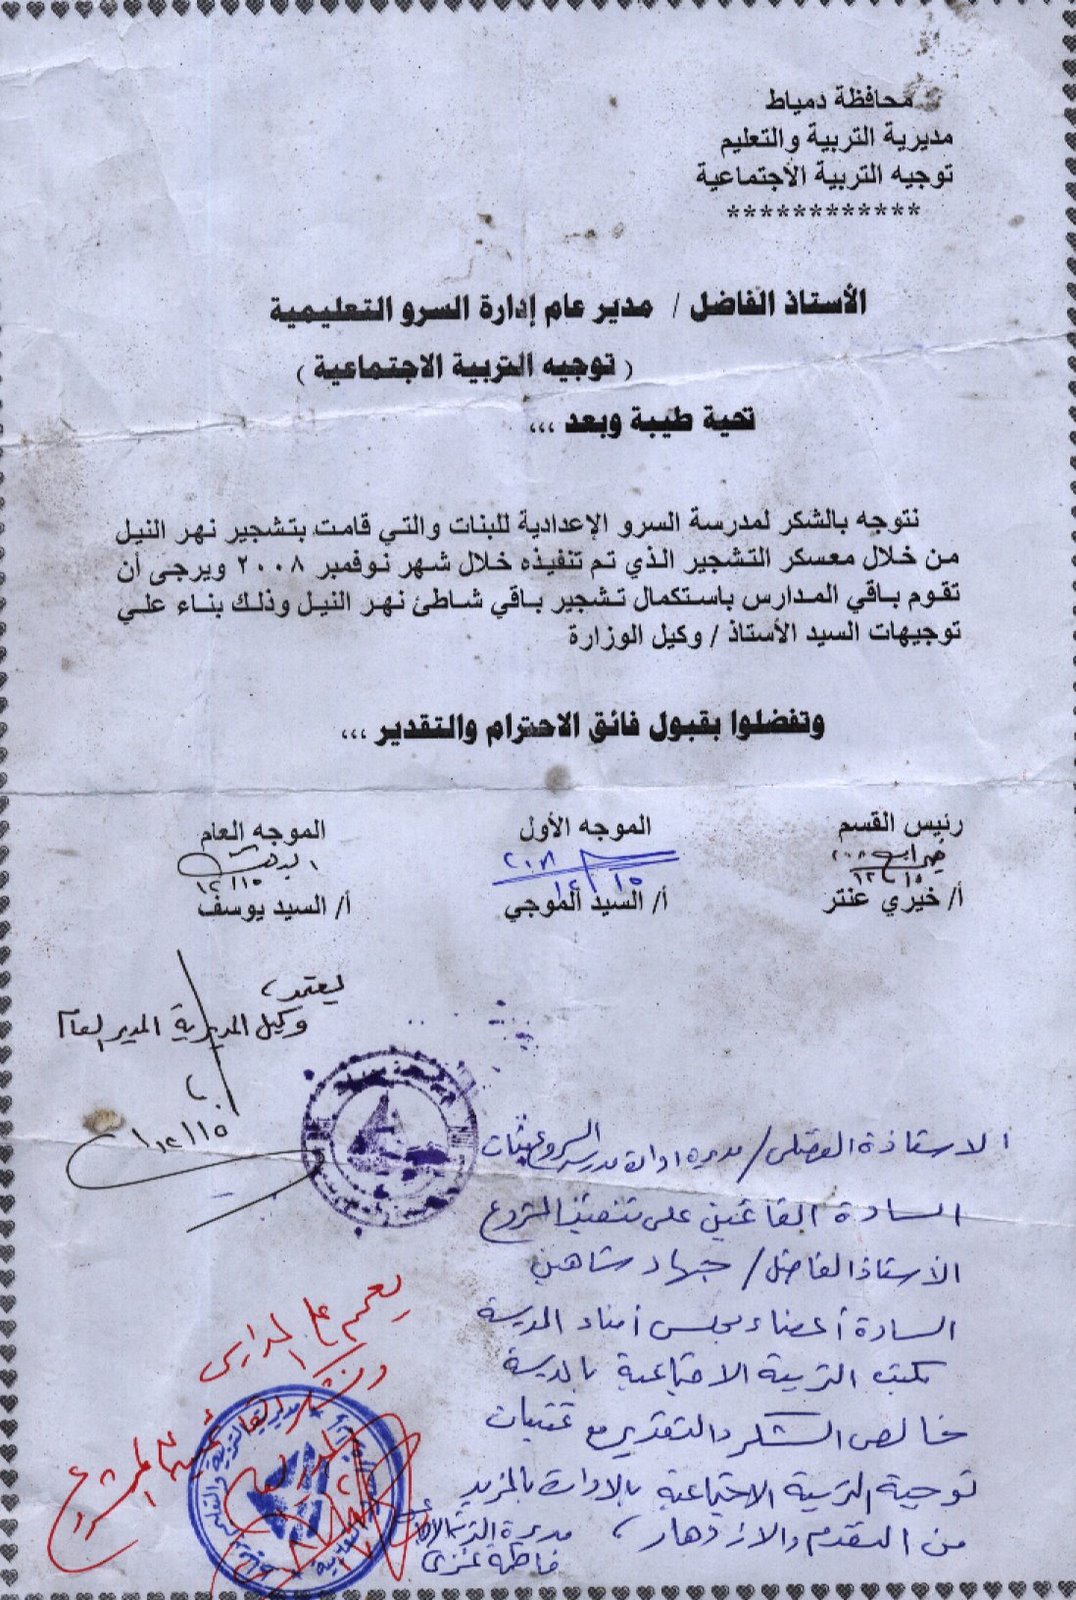 محافظة دمياط
مديرية التربية والتعليم
توجيه التربية الأجتماعية
************
الأستاذ الفاضل / مدير عام إدارة السرو التعليمية
( توجيه التربية الاجتماعية )
تحية طيبة وبعد ،،،
نتوجه بالشكر لمدرسة السرو الإعدادية للبنات والتي قامت بتشجير نهر النيل
من خلال معسكر التشجير الذي تم تنفيذه خلال شهر نوفمبر ٢٠٠٨ ويرجى أن
تقوم باقي المدارس باستكمال تشجير باقي شاطئ نهر النيل وذلك بناء علي
توجيهات السيد الأستاذ / وكيل الوزارة
وتفضلوا بقبول فائق الاحترام والتقدير ،،،
رئيس القسم الموجه الأول الموجه العام
أ/ خيري عنتر أ/ السيد الموجي أ/ السيد يوسف
يعتمد،
وكيل المديرية المدير العام
الاستاذة الفضلى / مديرة ادارة مدرسة السرو ع بنات
السادة القائمين على تنفيذ المشروع
الأستاذ الفاضل / جهاد شاهين
السادة أعضاء مجلس أمناء المدرسة
مكتب التربية الاجتماعية بالمدرسة
خالص الشكر والتقدير مع تمنيات
توجية التربية الاجتماعية بالادارة بالمزيد
من التقدم والازدهار ،
يعمم على المدارس